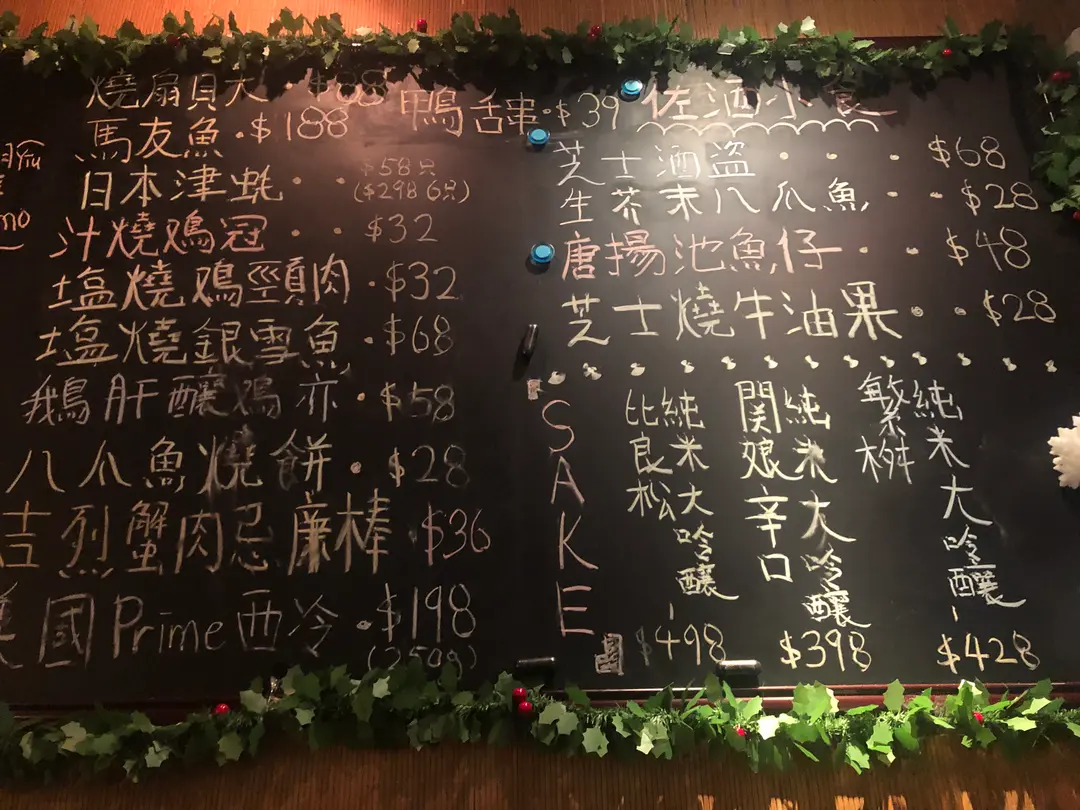 燒扇貝大 · $88
馬友魚 · $188
日本津蚝 · · $58只
($298 6只)
汁燒鳮冠 · · $32
塩燒鳮頸肉 · $32
塩燒銀雪魚 · $68
鵝肝釀鳮亦 · $58
八爪魚燒餅 · $28
吉烈蟹肉忌廉棒 $36
國Prime西冷 · $198
(250g)
鴨舌串 · $39
佐酒小食
芝士酒盜 · · · $68
生芥末八爪魚 · · $28
唐揚池魚仔 · · $48
芝士燒牛油果 · · $28
SAKE
純米大吟釀
比良松
$498
純米大吟釀
関娘辛口
$398
純米大吟釀
繁桝
$428